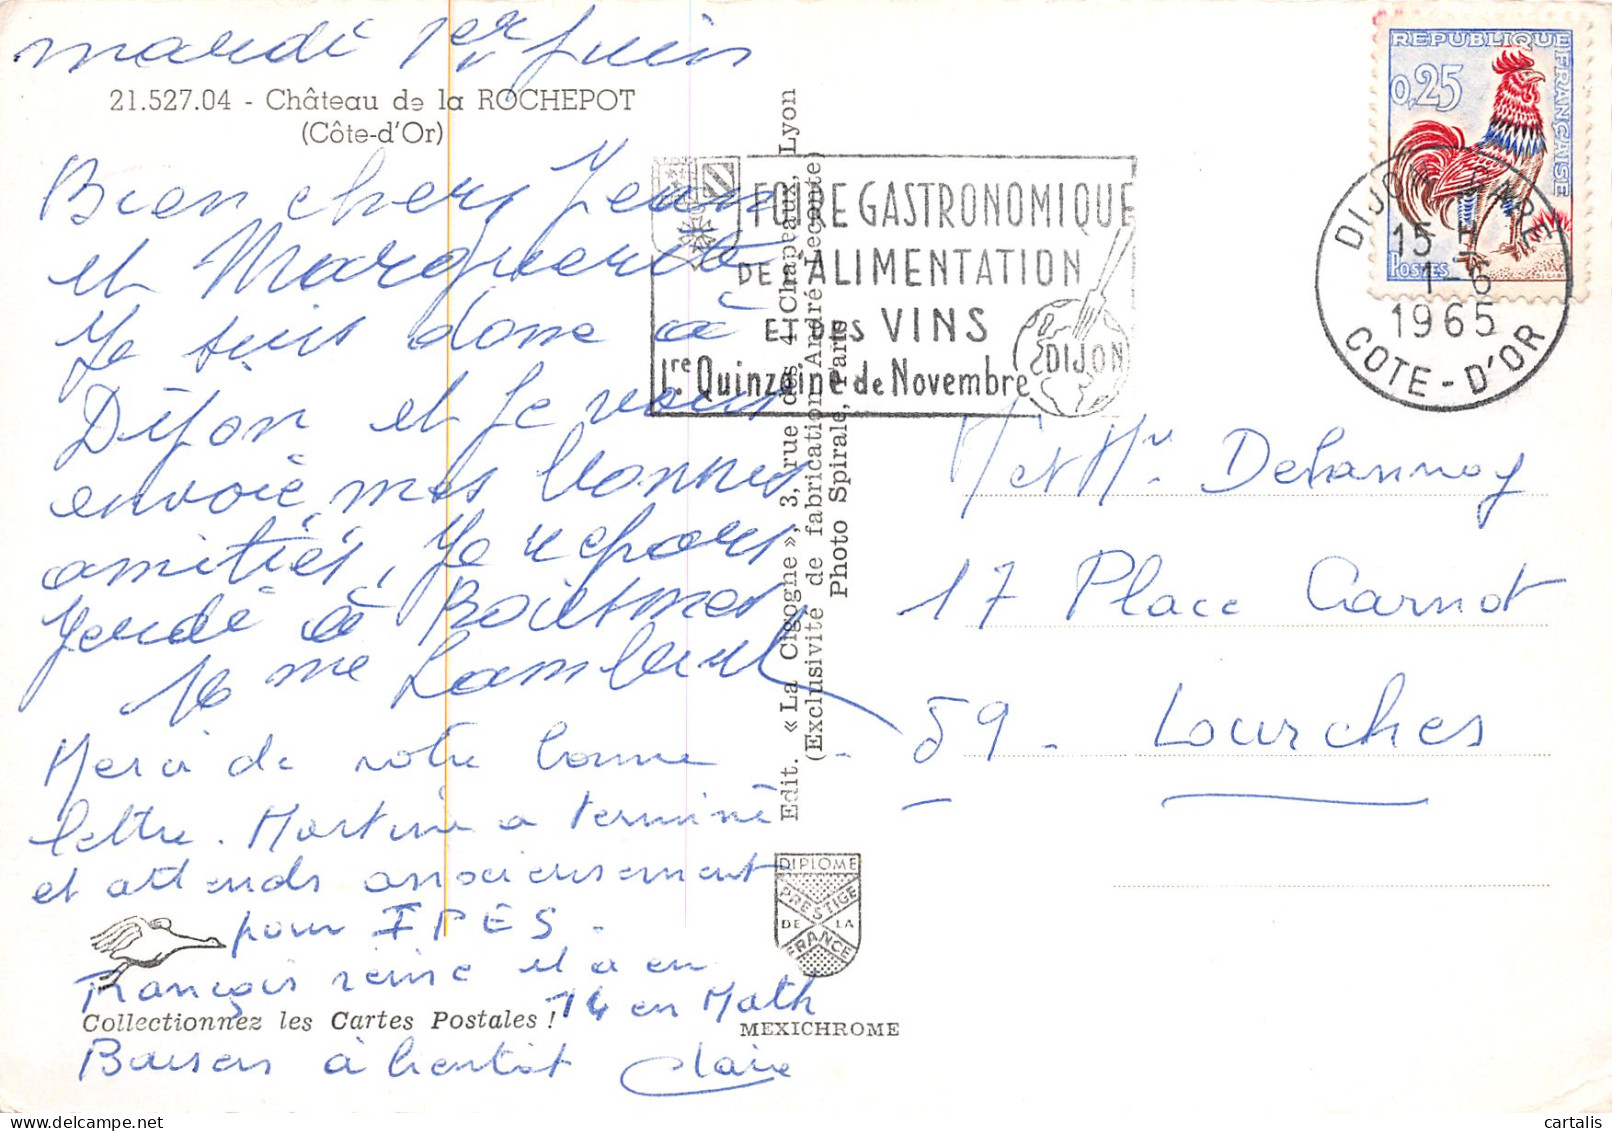 mardi 1er Juin
21.527.04 - Château de la ROCHEPOT
(Côte-d'Or)
Bien chers Jean
et Marguerite
Je suis donc à
Dijon et je vous
envoie mes bonnes
amitiés, Je repars
Jeudi à
Mme Lambert
Merci de votre bonne
lettre. Martine a terminé
et attends anxieusement
pour IPES.
François révise il a eu
14 en Math
Collectionnez les Cartes Postales !
Baisers à bientôt Claire
Edit. « La Cigogne », 3, rue des 4 Chapeaux, Lyon
(Exclusivité de fabrication André Lecoute)
Photo Spirale, Paris
DIPLOME
PRESTIGE
DE LA
FRANCE
MEXICHROME
FOIRE GASTRONOMIQUE
DE L'ALIMENTATION
ET DES VINS
1re Quinzaine de Novembre
DIJON
REPUBLIQUE FRANÇAISE
0,25
POSTES
DIJON GARE
15 H
1-6
1965
COTE-D'OR
M et Me Delannoy
17 Place Carnot
59 - Lourches
cartalis